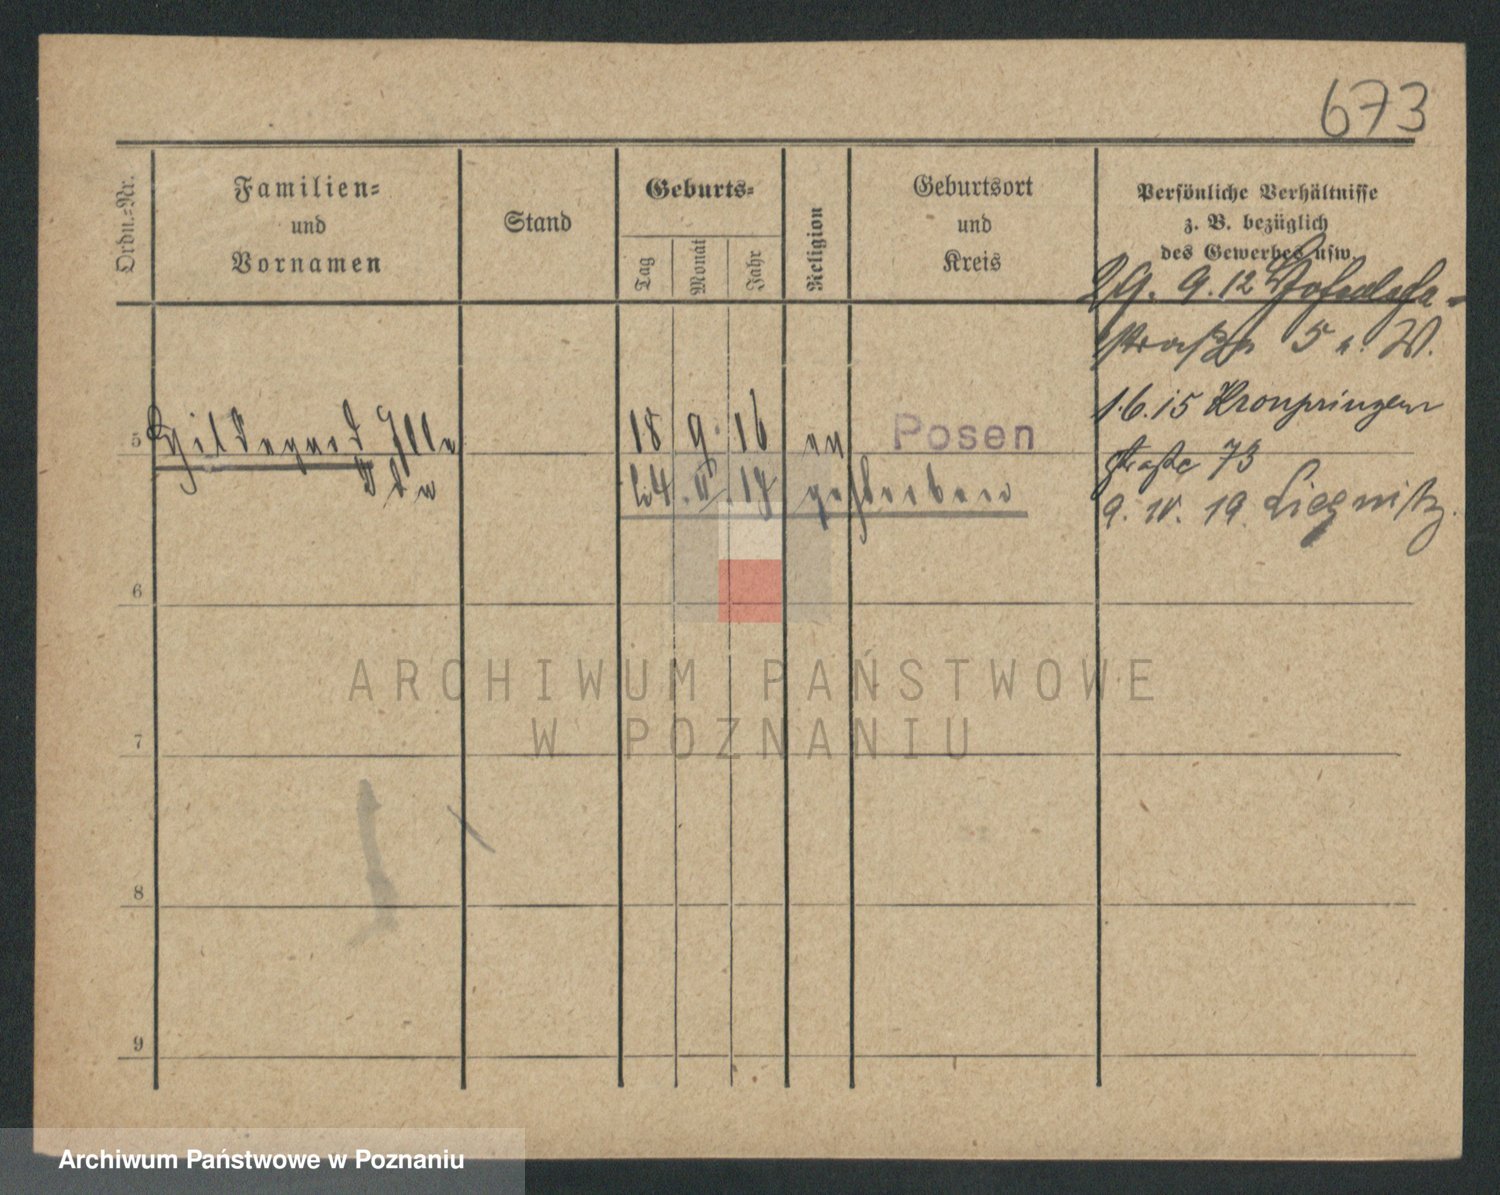 673
Ordn.-Nr.
Familien-
und
Vornamen
Stand
Geburts-
Tag
Monat
Jahr
Religion
Geburtsort
und
Kreis
Persönliche Verhältnisse
z. B. bezüglich
des Gewerbes usw.
29. 9. 12
straße 5 n. W.
1.6.15 Kronprinzen
straße 73
9. IV. 19. Liegnitz.
5 Hildegard Ilse 18 9. 16 ev Posen
Ida 24. 18 gestorben
6
7
8
9
ARCHIWUM PAŃSTWOWE
W POZNANIU
Archiwum Państwowe w Poznaniu